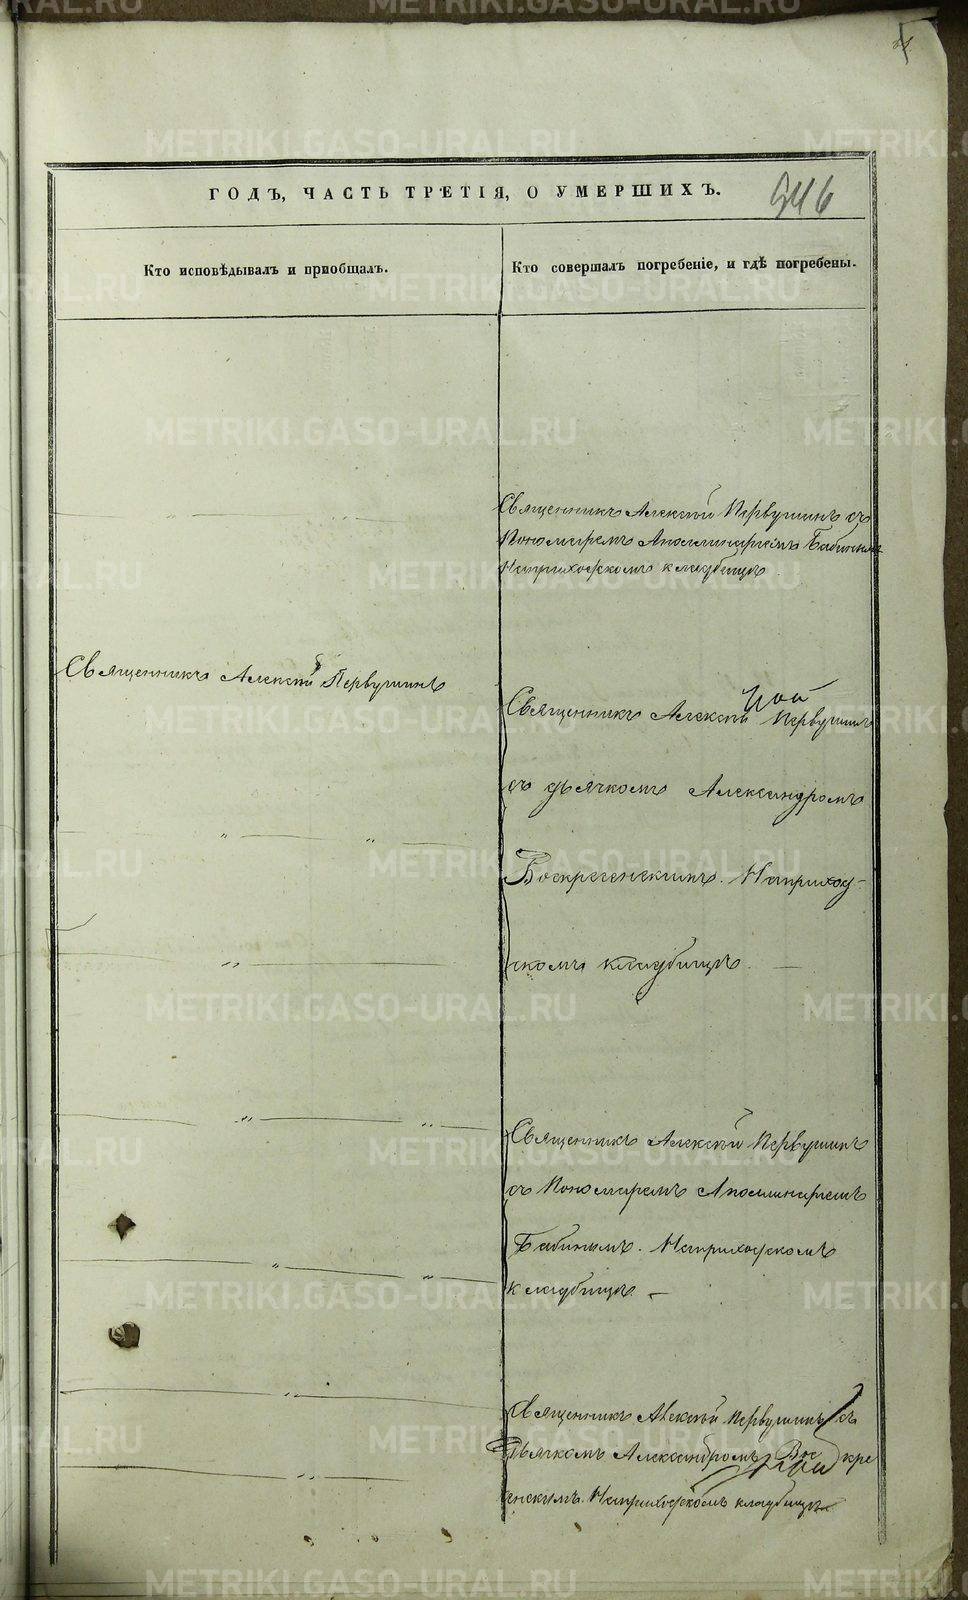 ГОДЪ, ЧАСТЬ ТРЕТІЯ, О УМЕРШИХЪ.
946
Кто исповѣдывалъ и пріобщалъ.
Кто совершалъ погребеніе, и гдѣ погребены.
Священникъ Алексѣй Первушинъ съ
Пономаремъ Аполлинаріемъ Бабинымъ
На приходскомъ кладбищѣ
Священникъ Алексѣй Первушинъ
Священникъ Алексѣй Первушинъ
съ дьячкомъ Александромъ
Воскресенскимъ. На приход-
скомъ кладбищѣ.
Священникъ Алексѣй Первушинъ
съ Пономаремъ Аполлинаріемъ
Бабинымъ. На приходскомъ
кладбищѣ.
Священникъ Алексѣй Первушинъ съ
Дьячкомъ Александромъ Воскре
сенскимъ. На приходскомъ кладбищѣ
METRIKI.GASO-URAL.RU